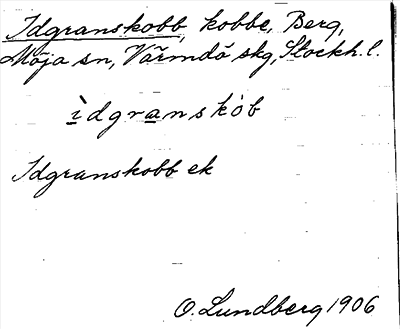 Idgranskobb, kobbe, Berg,
Möja sn, Värmdö skg, Stockh. l.
ìdgranskòb
Idgranskobb ek
O. Lundberg 1906